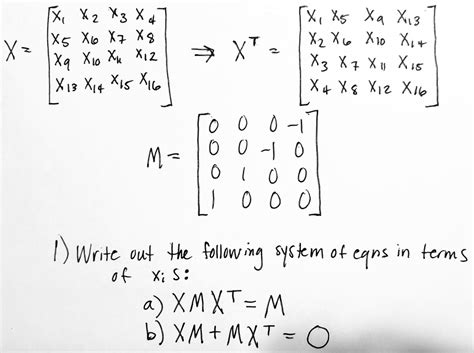 X = [x₁ x₂ x₃ x₄
x₅ x₆ x₇ x₈
x₉ x₁₀ x₁₁ x₁₂
x₁₃ x₁₄ x₁₅ x₁₆] ⇒ Xᵀ = [x₁ x₅ x₉ x₁₃
x₂ x₆ x₁₀ x₁₄
x₃ x₇ x₁₁ x₁₅
x₄ x₈ x₁₂ x₁₆]
M = [0 0 0 -1
0 0 -1 0
0 1 0 0
1 0 0 0]
1) Write out the following system of eqns in terms
of xᵢs:
a) XMXᵀ = M
b) XM + MXᵀ = 0